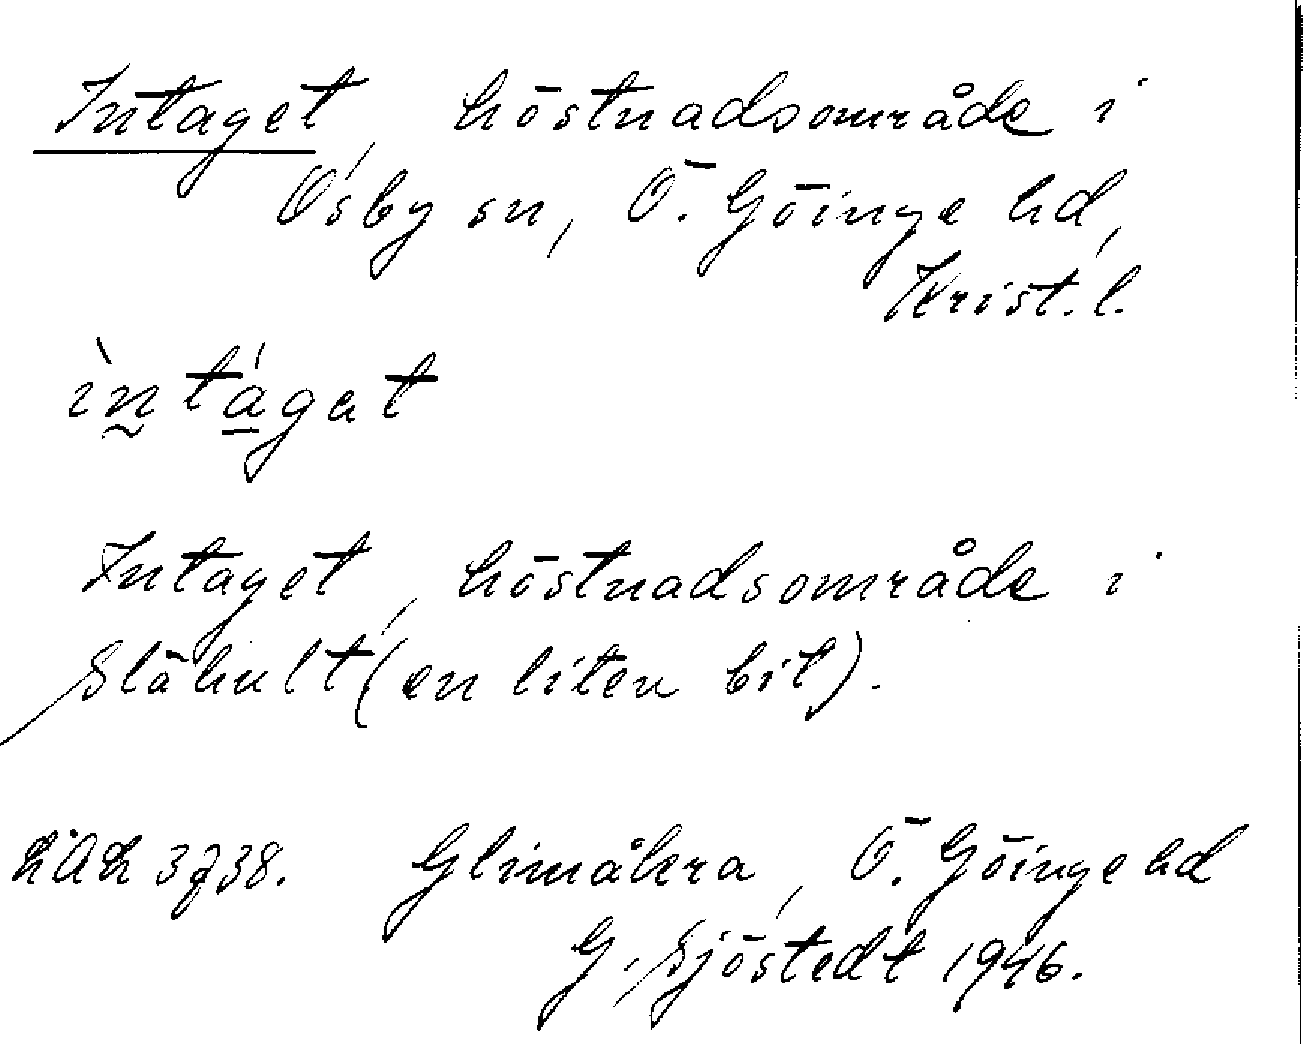 Intaget, höstnadsområde i
Osby sn, Ö. Göinge hd,
Krist. l.
ìntágat
Intaget, höstnadsområde i
Slähult (en liten bit).
3738. Glimåkra, Ö. Göinge hd
G. Sjöstedt 1946.